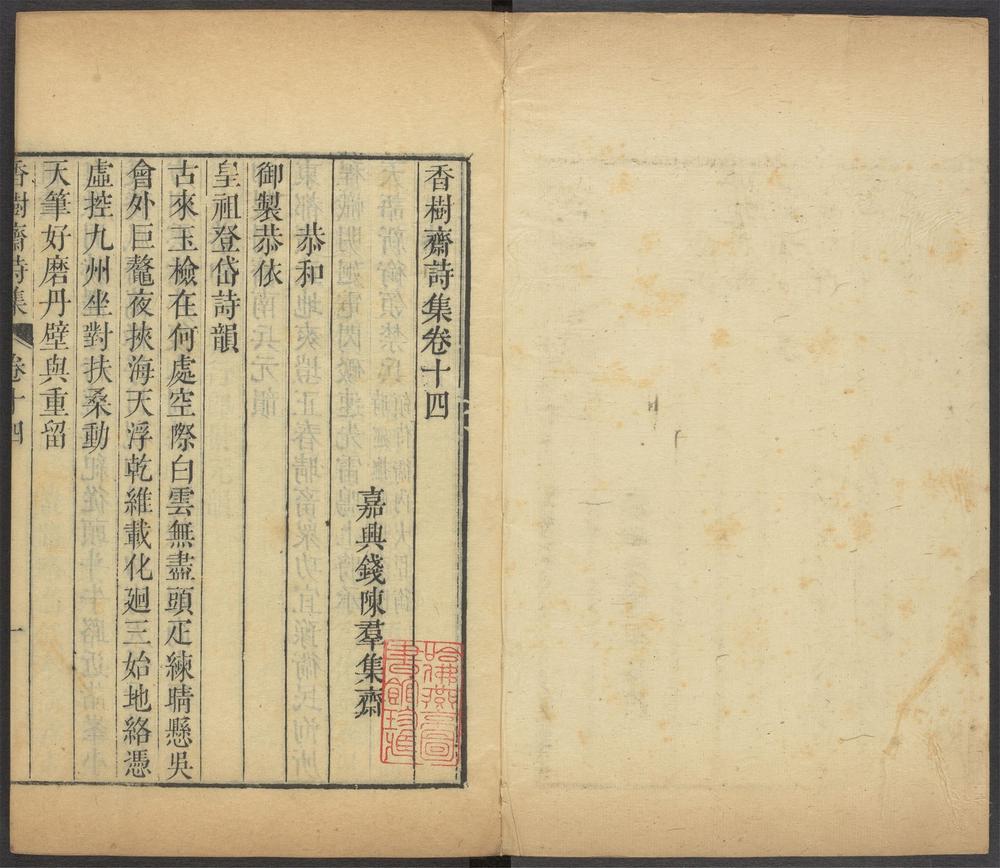 香樹齋詩集卷十四
嘉興錢陳羣集齋
恭和
御製恭依
皇祖登岱詩韻
古來玉檢在何處空際白雲無盡頭疋練晴懸吳
會外巨鼇夜挾海天浮乾維載化廻三始地絡憑
虛控九州坐對扶桑動
天筆好磨丹壁與重留
香樹齋詩集 卷十四 一
哈佛燕京圖
書館珍藏